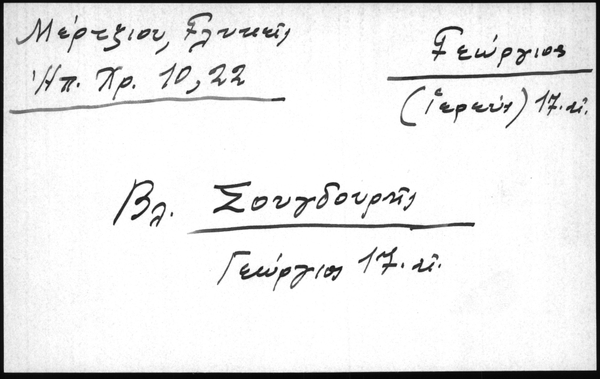 Μέρτζιου, Γλυκεῖς
Ἠπ. Χρ. 10, 22
Γεώργιος
(ἱερεὺς) 17. αἰ.
Βλ. Σουγδουρῆς
Γεώργιος 17. αἰ.